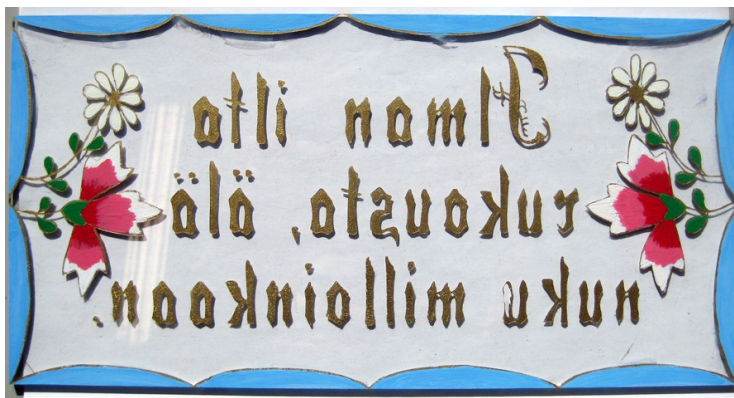 Ilman ilta
rukousta, älä
nuku milloinkaan.